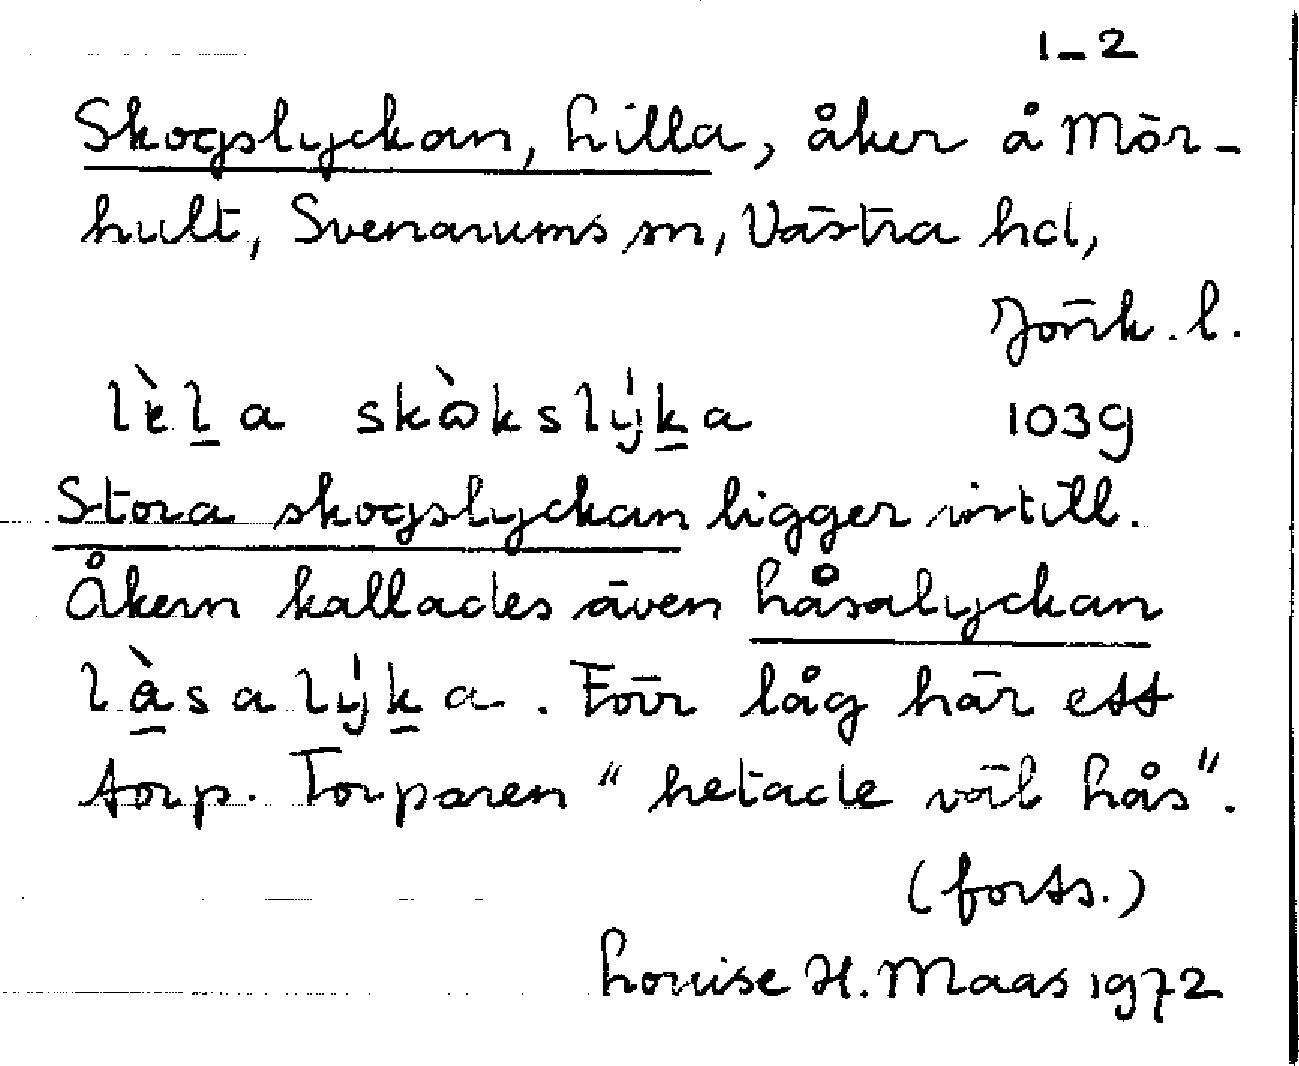 1_2
Skogslyckan, Lilla, åker å Mör-
hult, Svenarums sn, Västra hd,
Jönk. l.
lèḻa skòkslýḵa 1039
Stora skogslyckan ligger intill.
Åkern kallades även Låsalyckan
làsalýḵa. Förr låg här ett
torp. Torparen "hetade väl Lås".
(forts.)
Louise H. Maas 1972